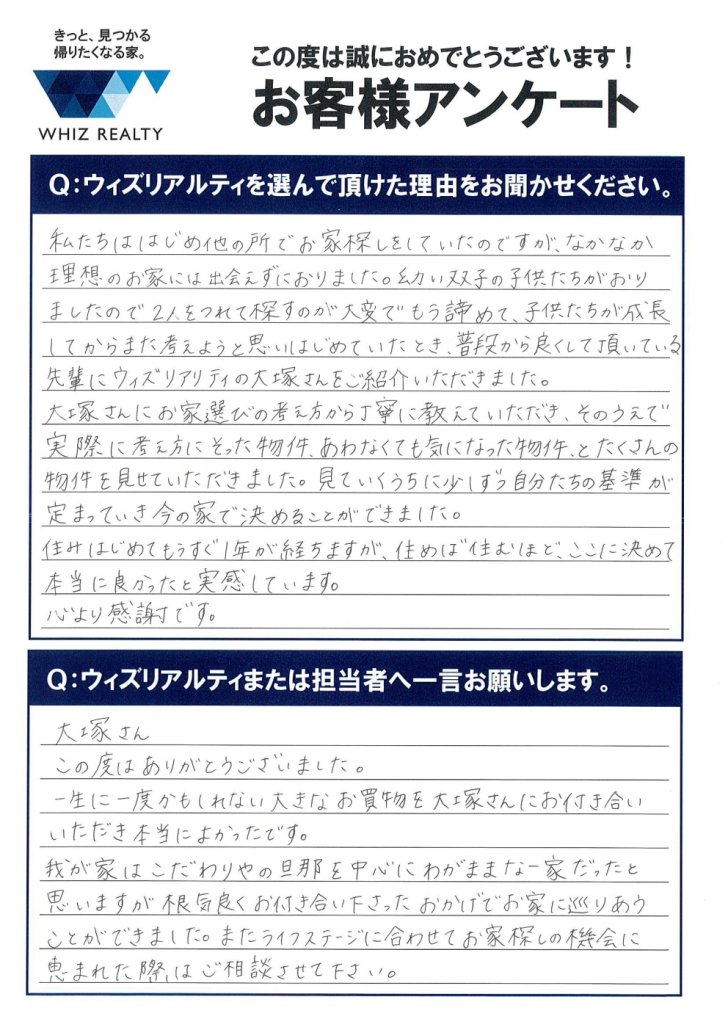 きっと、見つかる
帰りたくなる家。
WHIZ REALTY
この度は誠におめでとうございます！
お客様アンケート
Q:ウィズリアルティを選んで頂けた理由をお聞かせください。
私たちははじめ他の所でお家探しをしていたのですが、なかなか
理想のお家には出会えずにおりました。幼い双子の子供たちがおり
ましたので2人をつれて探すのが大変でもう諦めて、子供たちが成長
してからまた考えようと思いはじめていたとき、普段から良くして頂いている
先輩にウィズリアリティの大塚さんをご紹介いただきました。
大塚さんにお家選びの考え方から丁寧に教えていただき、そのうえで
実際に考え方にそった物件、あわなくても気になった物件、とたくさんの
物件を見せていただきました。見ていくうちに少しずつ自分たちの基準が
定まっていき今の家で決めることができました。
住みはじめてもうすぐ1年が経ちますが、住めば住むほど、ここに決めて
本当に良かったと実感しています。
心より感謝です。
Q:ウィズリアルティまたは担当者へ一言お願いします。
大塚さん
この度はありがとうございました。
一生に一度かもしれない大きなお買物を大塚さんにお付き合い
いただき本当によかったです。
我が家はこだわりやの旦那を中心にわがままな一家だったと
思いますが根気良くお付き合い下さったおかげでお家に巡りあう
ことができました。またライフステージに合わせてお家探しの機会に
恵まれた際はご相談させて下さい。